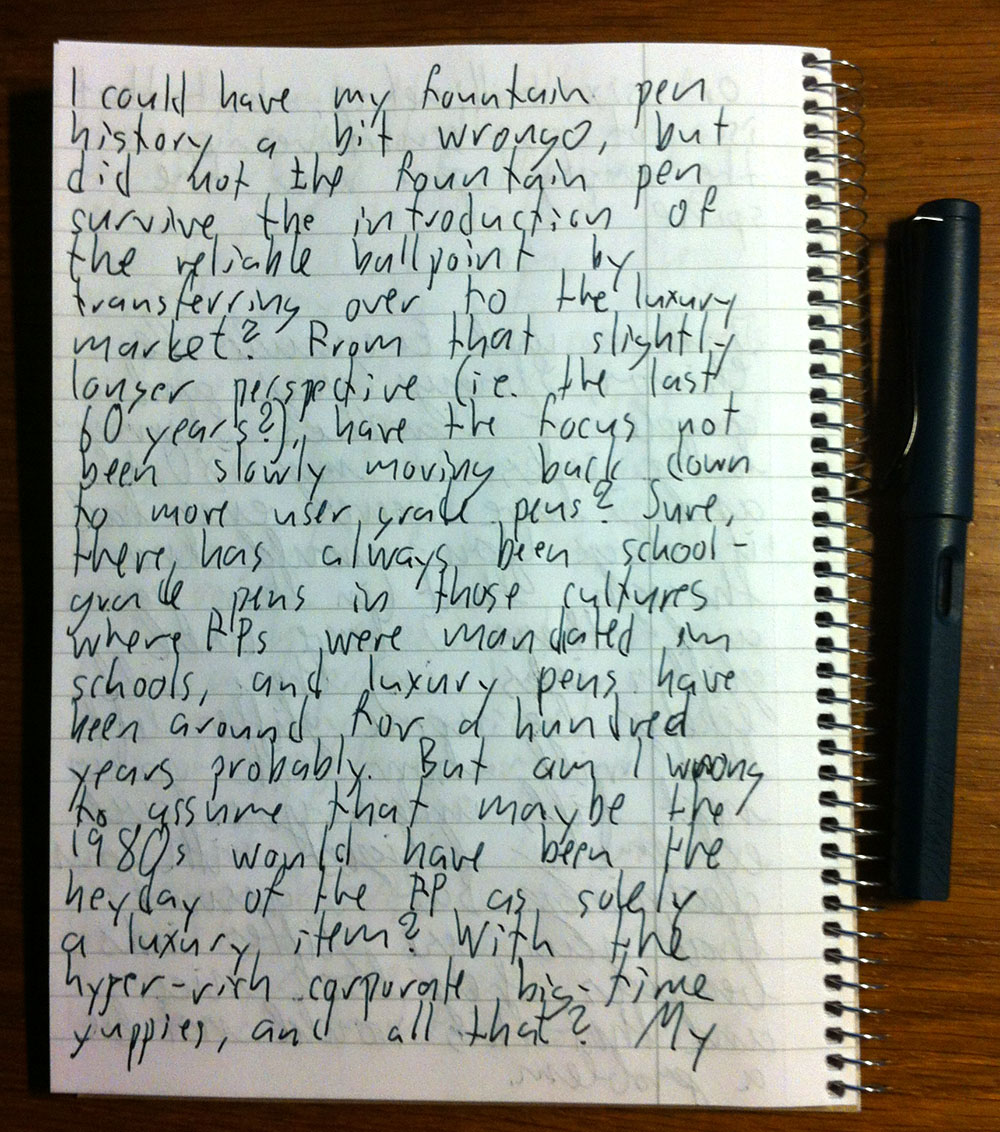 I could have my fountain pen
history a bit wrongo, but
did not the fountain pen
survive the introduction of
the reliable ballpoint by
transferring over to the luxury
market? From that slightly
longer perspective (i.e. the last
60 years?), have the focus not
been slowly moving back down
to more user grade pens? Sure,
there has always been school-
grade pens in those cultures
where FPs were mandated in
schools, and luxury pens have
been around for a hundred
years probably. But am I wrong
to assume that maybe the
1980s would have been the
heyday of the FP as solely
a luxury item? With the
hyper-rich corporate big-time
yuppies, and all that? My